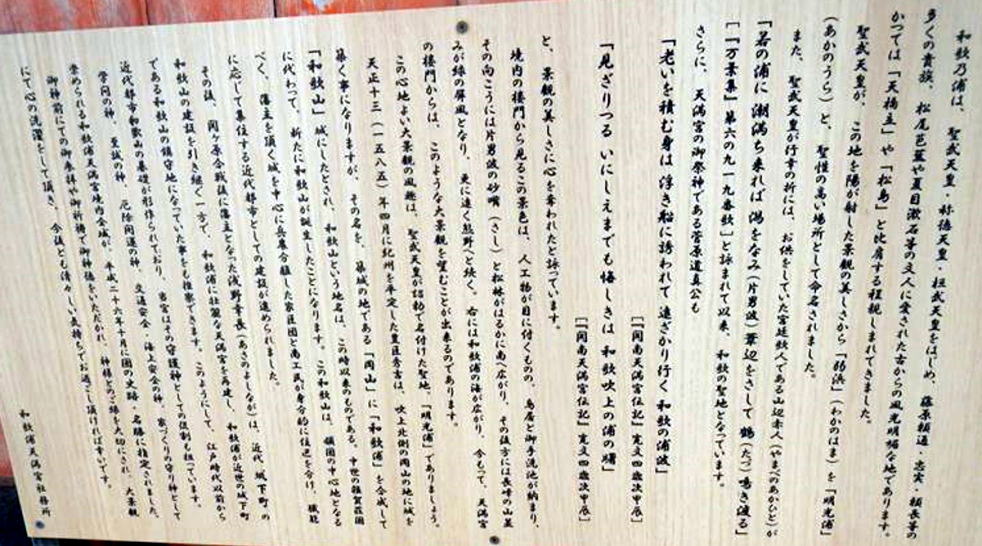 和歌乃浦は、聖武天皇・称徳天皇・桓武天皇をはじめ、藤原頼通・忠実・頼長等の
多くの貴族、松尾芭蕉や夏目漱石等の文人に愛された古からの風光明媚な地であります。
かつては「天橋立」や「松島」と比肩する程親しまれてきました。
聖武天皇が、この地を陽が射した景観の美しさから「弱浜」(わかのはま)を「明光浦」
(あかのうら)と、聖性の高い場所として命名されました。
また、聖武天皇が行幸の折には、お供をしていた宮廷歌人である山辺赤人(やまべのあかひと)が
「若の浦に 潮満ち来れば 潟をなみ(片男波)葦辺をさして 鶴(たづ)鳴き渡る」
[『万葉集』第六の九一九番歌]と詠まれて以来、和歌の聖地となっています。
さらに、天満宮の御祭神である菅原道真公も
「老いを積む身は 浮き船に誘われて 遠ざかり行く 和歌の浦波」
[『関南天満宮伝記』寛文四歳次甲辰]
「見ざりつる いにしえまでも 悔しきは 和歌吹上の 浦の曙」
[『関南天満宮伝記』寛文四歳次甲辰]
と、景観の美しさに心を奪われたと詠っています。
境内の楼門から見るこの景色は、人工物が目に付くものの、鳥居と御手洗池が納まり、
その向こうには片男波の砂嘴(さし)と松林がはるかに南へ広がり、その後方には長峰の山並
みが緑の屏風となり、更に遠く熊野へと続く。右には和歌浦の海が広がり、今もって、天満宮
の楼門からは、このような大景観を望むことが出来るのであります。
この心地よい大景観の風趣は、聖武天皇が詔勅で名付けた聖地「明光浦」でありましょう。
天正十三(一五八五)年四月に紀州を平定した豊臣秀吉は、吹上北側の岡山の地に城を
築く事になりますが、その名を、築城の地である「岡山」に「和歌浦」を合成して
「和歌山」城にしたとされ、和歌山という地名は、この時以来のものである。中世の雑賀荘園
に代わって、新たに和歌山が誕生したことになります。この和歌山は、領国の中心地となる
べく、藩主を頂く城を中心に兵庫合職した家荘園と商工民が身分的に住処を分け、職能
に応じて集住する近代都市としての建設が進められました。
その後、関ヶ原合戦後に藩主となった浅野幸長(あさのよしなが)は、近代城下町の
和歌山の建設を引き継ぐ一方で、和歌浦に壮麗な天満宮を再建し、和歌浦が近世の城下町
である和歌山の鎮守地になっていた事をも推察できます。このようにして、江戸時代以前から
近代都市和歌山の基礎が形作られており、当宮はその守護神としての役割も担っています。
学問の神、至誠の神、厄除開運の神、交通安全、海上安全の神、家づくりの守り神として
崇められる和歌浦天満宮境内全域が、平成二十六年十月に国の史跡・名勝に指定されました。
御神前にての御参拝や御祈祷で御神徳をいただかれ、神様とのご縁を大切にされ、大景観
にて心の洗濯をして頂き、今後とも清々しい気持ちでお過ごし頂ければ幸いです。
和歌浦天満宮社務所